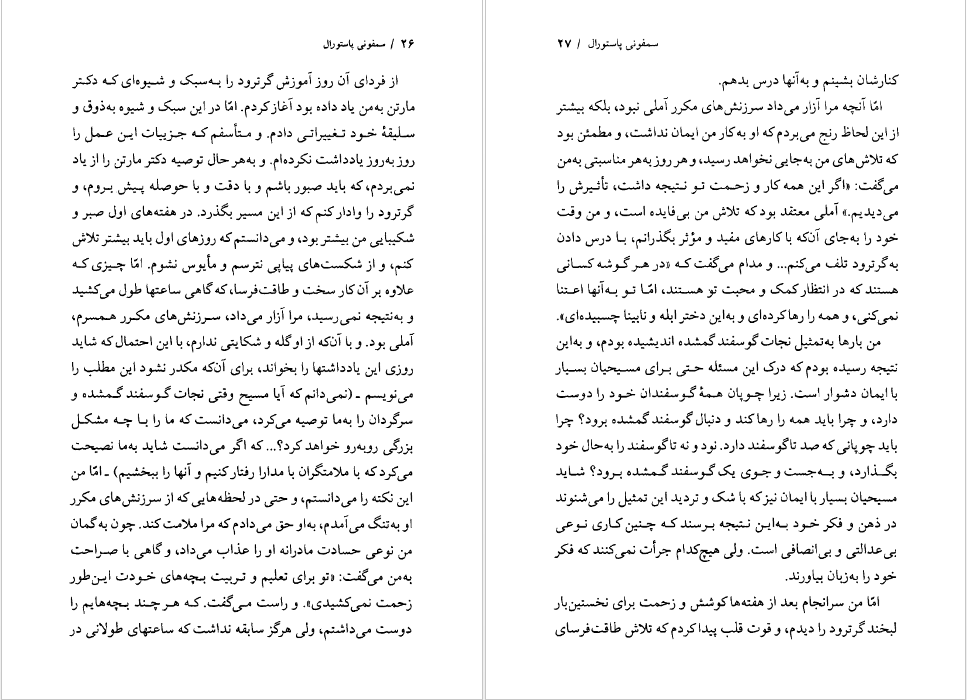 ۲۶ / سمفونی پاستورال
از فردای آن روز آموزش گرترود را به‌سبک و شیوه‌ای که دکتر
مارتن به‌من یاد داده بود آغاز کردم. امّا در این سبک و شیوه به‌ذوق و
سلیقهٔ خود تغییراتی دادم. و متأسفم که جزییات این عمل را
روز به‌روز یادداشت نکرده‌ام. و به‌هر حال توصیه دکتر مارتن را از یاد
نمی‌بردم، که باید صبور باشم و با دقت و با حوصله پیش بروم، و
گرترود را وادار کنم که از این مسیر بگذرد. در هفته‌های اول صبر و
شکیبایی من بیشتر بود، و می‌دانستم که روزهای اول باید بیشتر تلاش
کنم، و از شکست‌های پیاپی نترسم و مأیوس نشوم. امّا چیزی که
علاوه بر آن کار سخت و طاقت‌فرسا، که گاهی ساعتها طول می‌کشید
و به‌نتیجه نمی‌رسید، مرا آزار می‌داد، سرزنش‌های مکرر همسرم،
آملی بود. و با آن‌که از او گله و شکایتی ندارم، با این احتمال که شاید
روزی این یادداشتها را بخواند، برای آن‌که مکدر نشود این مطلب را
می‌نویسم ـ (نمی‌دانم که آیا مسیح وقتی نجات گوسفند گمشده و
سرگردان را به‌ما توصیه می‌کرد، می‌دانست که ما را با چه مشکل
بزرگی روبه‌رو خواهد کرد؟... که اگر می‌دانست شاید به‌ما نصیحت
می‌کرد که با ملامتگران با مدارا رفتار کنیم و آنها را ببخشیم) ـ امّا من
این نکته را می‌دانستم، و حتی در لحظه‌هایی که از سرزنش‌های مکرر
او به‌تنگ می‌آمدم، به‌او حق می‌دادم که مرا ملامت کند. چون به‌گمان
من نوعی حسادت مادرانه او را عذاب می‌داد، و گاهی با صراحت
به‌من می‌گفت: «تو برای تعلیم و تربیت بچه‌های خودت این‌طور
زحمت نمی‌کشیدی». و راست می‌گفت. که هر چند بچه‌هایم را
دوست می‌داشتم، ولی هرگز سابقه نداشت که ساعتهای طولانی در
سمفونی پاستورال / ۲۷
کنارشان بشینم و به‌آنها درس بدهم.
امّا آنچه مرا آزار می‌داد سرزنش‌های مکرر آملی نبود، بلکه بیشتر
از این لحاظ رنج می‌بردم که او به‌کار من ایمان نداشت، و مطمئن بود
که تلاش‌های من به‌جایی نخواهد رسید، و هر روز به‌هر مناسبتی به‌من
می‌گفت: «اگر این همه کار و زحمت تو نتیجه داشت، تأثیرش را
می‌دیدیم.» آملی معتقد بود که تلاش من بی‌فایده است، و من وقت
خود را به‌جای آن‌که با کارهای مفید و مؤثر بگذرانم، با درس دادن
به‌گرترود تلف می‌کنم... و مدام می‌گفت که «در هر گوشه کسانی
هستند که در انتظار کمک و محبت تو هستند، امّا تو به‌آنها اعتنا
نمی‌کنی، و همه را رها کرده‌ای و به‌این دختر ابله و نابینا چسبیده‌ای».
من بارها به‌تمثیل نجات گوسفند گمشده اندیشیده بودم، و به‌این
نتیجه رسیده بودم که درک این مسئله حتی برای مسیحیان بسیار
با ایمان دشوار است. زیرا چوپان همهٔ گوسفندان خود را دوست
دارد، و چرا باید همه را رها کند و دنبال گوسفند گمشده برود؟ چرا
باید چوپانی که صد تا گوسفند دارد. نود و نه تا گوسفند را به‌حال خود
بگذارد، و به‌جست و جوی یک گوسفند گمشده برود؟ شاید
مسیحیان بسیار با ایمان نیز که با شک و تردید این تمثیل را می‌شنوند
در ذهن و فکر خود به‌این نتیجه برسند که چنین کاری نوعی
بی‌عدالتی و بی‌انصافی است. ولی هیچ‌کدام جرأت نمی‌کنند که فکر
خود را به‌زبان بیاورند.
امّا من سرانجام بعد از هفته‌ها کوشش و زحمت برای نخستین‌بار
لبخند گرترود را دیدم، و قوت قلب پیدا کردم که تلاش طاقت‌فرسای